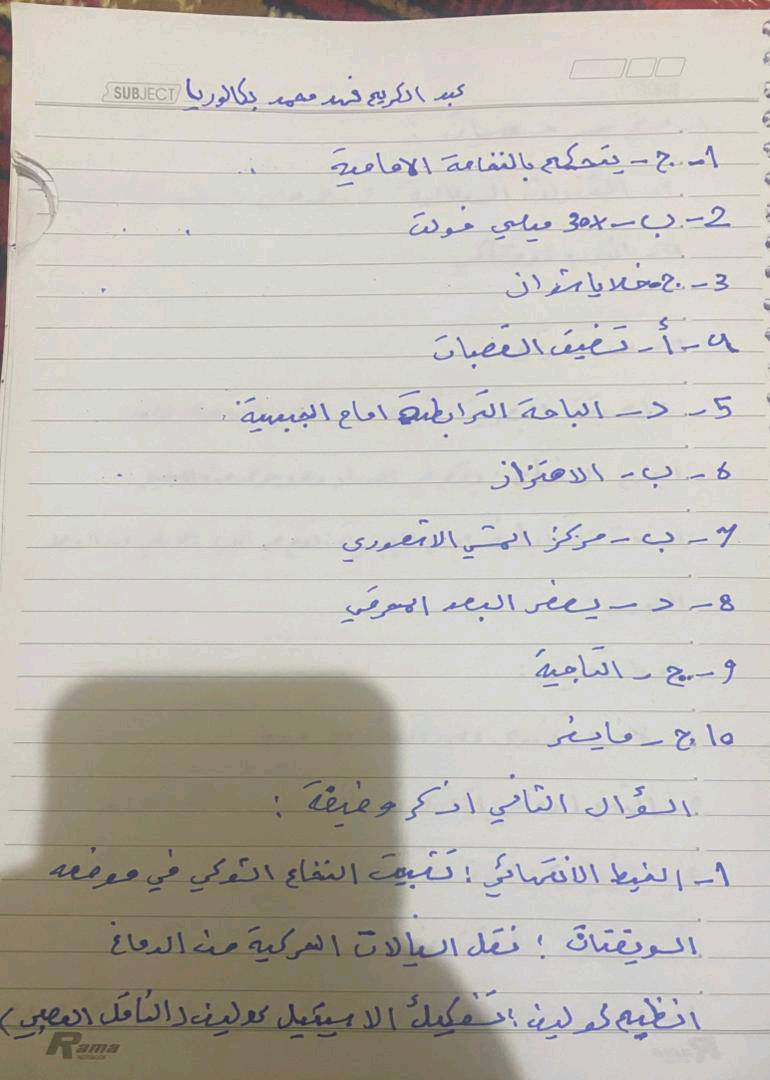 SUBJECT عبد الكريم فهد محمد بكالوريا
1- ج - يتحكم بالنخامة الامامية
2- ب - 30 ميلي فولت
3- ج خلايا شوان
4- أ - تضيق القصبات
5- د - الباحة الترابطية امام الجبهية
6- ب - الاهتزاز
7- ب - مركز المشي الاتصوري
8- د - يصغر البعد المحرقي
9- ج - التاجية
10 ج - مايسنر
السؤال الثاني اذكر وظيفة :
1- الخيط الانتهائي : تثبيت النخاع الشوكي في موضعه
السويقتان : نقل السيالات الحركية من الدماغ
انظيم كولين : تفكيك الاسيتيل كولين (الناقل العصبي)
Rama
NOTEBOOK
Rama